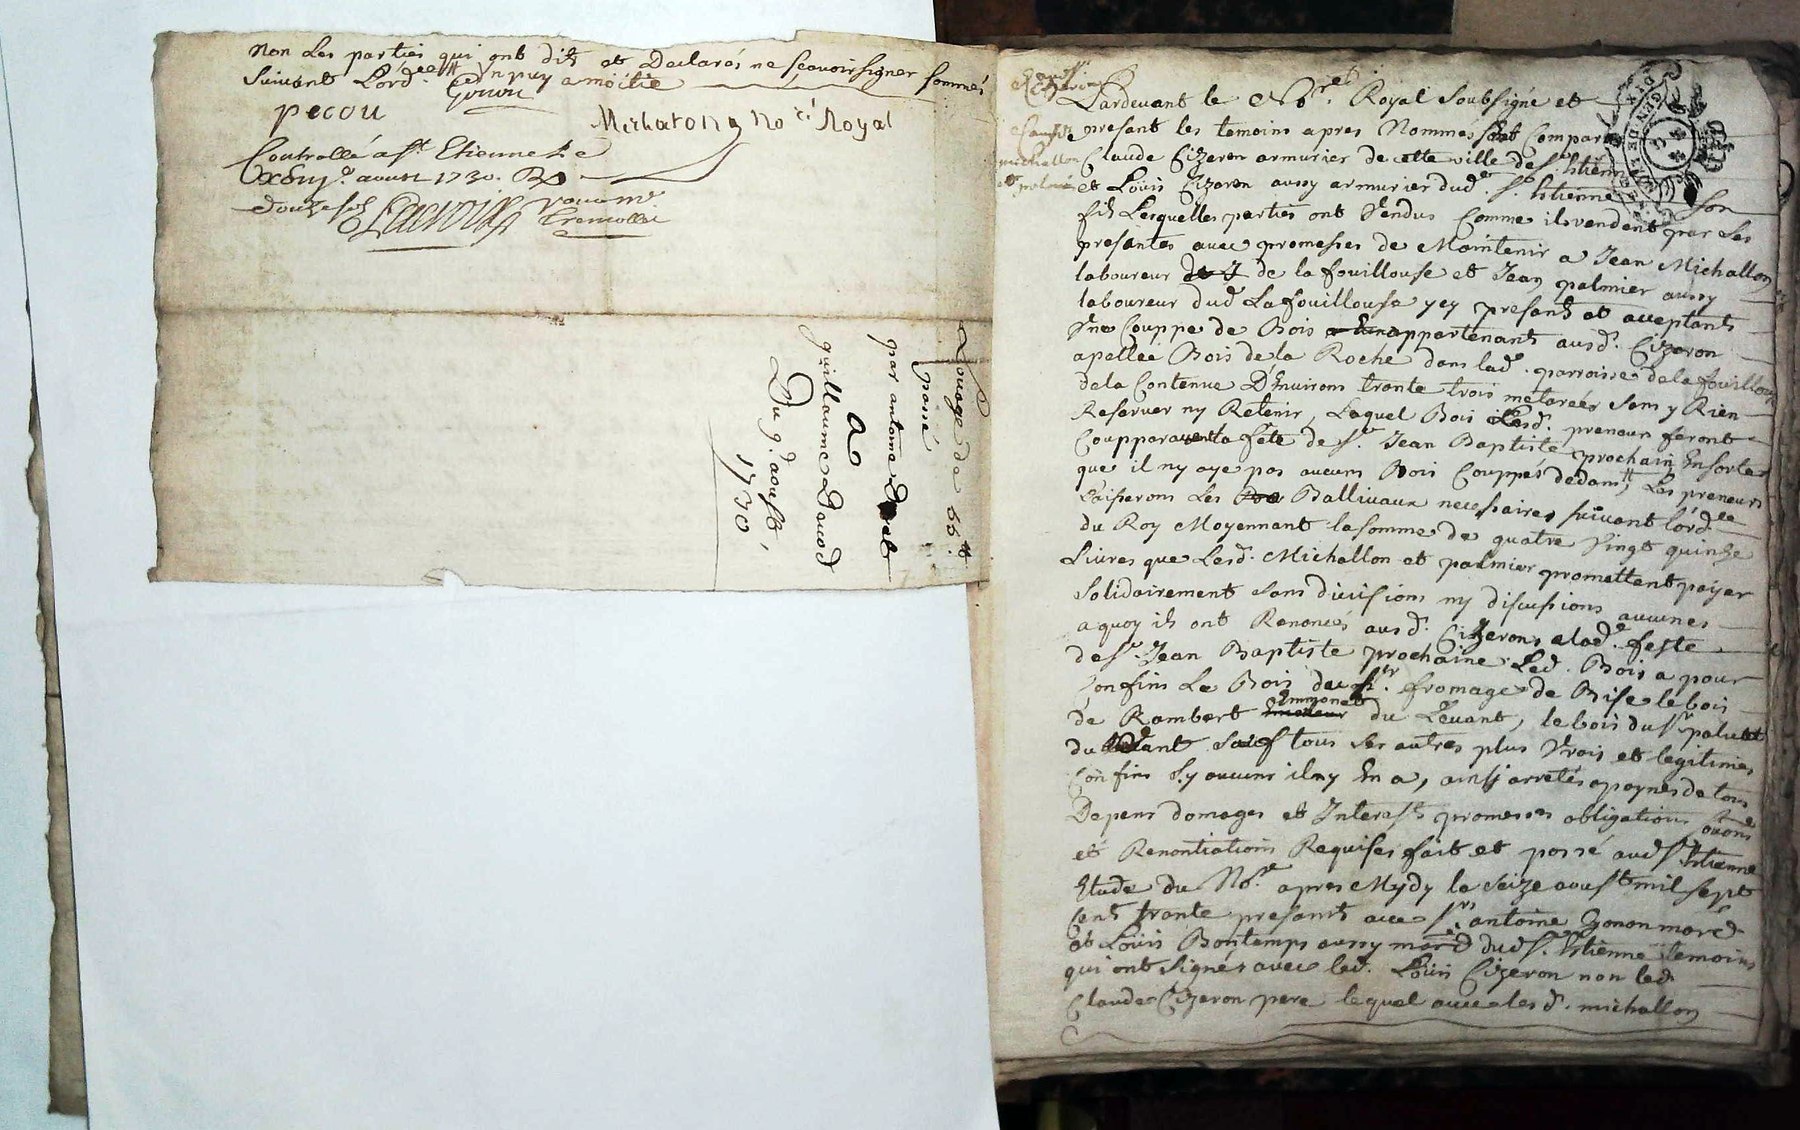 non les parties qui ont dit et Declarés ne sçavoir signer sommés
suivant Lord.ce
Gonon n puy a moitié
pecou
Micharon no.re Royal
Controllé a St. Etienne le
aoust 1730. R
douze sols
Lacroix
Louage de 66.tt
passé
par antoine
a
guillaume
Du 9.e aoust,
1730
Pardevant le No.re Royal soubsigné et
presant les temoins apres Nommes sont Comparu
Claude Cizeron armurier de cette ville de St. Etienne
et Loüis Cizeron aussy armurier dud. St. Etienne son
fils Lesquelles parties ont Vendus Comme ils vendent par les
presantes avec promesses de Maintenir a Jean Michallon
laboureur de la fouillouse et Jean palmier aussy
laboureur dud. La fouillouse yey presants et acceptants
Vne Couppe de Bois appartenant ausd. Cizeron
apellée Bois de la Roche dans lad. parroisse de la fouillouse
de la Contenue D'Environs trante trois metarées sans y Rien
Reserver ny Retenir, Laquel Bois Lesd. preneurs feront
Coupper avant la féte de St. Jean Baptiste prochain En sorte
que il ny aye pas aucuns Bois Couppés dedans, Les preneurs
Laisserons Les Ballivaux necessaires suivant lord.ce
du Roy Moyennant la somme de quatre Vingt quinze
Livres que Lesd. Michallon et palmier promettent payer
Solidairement sans divisions ny discussions aucunes
a quoy ils ont Renoncés ausd. Cizerons a lad. feste
de St. Jean Baptiste prochaine Led. Bois a pour
Confins Le Bois de fromage de Bise le bois
de Rambert Emmonet du Levant, le bois du Sr. paluat
du sauf tous ses autres plus Vrois et legitimes
Confins sy aucuns il ny En a, ainsy arretés a paynes de tous
Depens domages et Interests promesses obligations
et Renontiations Requises fait et passé aud. St. Etienne
Etude du No.re apres Mydy le seize aoust mil sept
Cent trante presants avec Srs. antoine Gonon march.d
et Loüis Bontemps aussy march.d dud. St. Etienne temoins
qui ont signés avec led. Loüis Cizeron non led.
Claude Cizeron pere lequel avec lesd. michallon